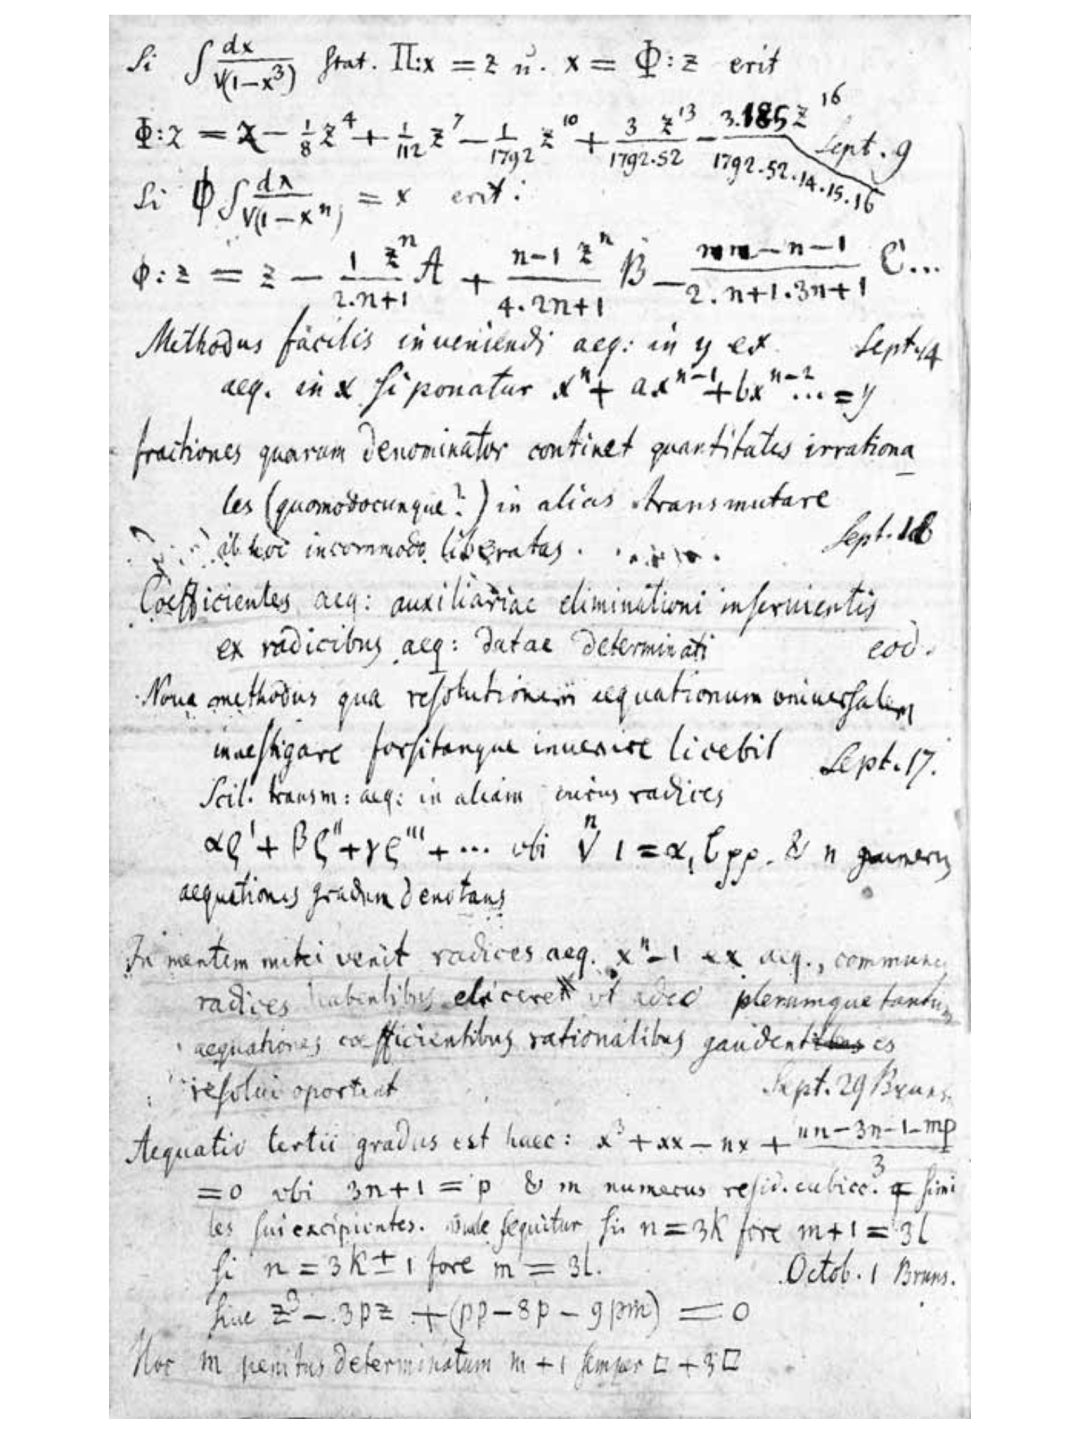 Si ∫ dx/√(1−x³) stat. Π:x = z u. x = Φ:z erit
Φ:z = z − 1/8 z⁴ + 1/112 z⁷ − 1/1792 z¹⁰ + 3 z¹³/1792.52 − 3.185 z¹⁶/1792.52.14.15.16 Sept. 9
Si Φ ∫ dx/√(1−xⁿ) = x erit:
Φ:z = z − 1 zⁿ/2.n+1 A + n−1 zⁿ/4.2n+1 B − nn−n−1/2.n+1.3n+1 C...
Methodus facilis inveniendi aeq: in y ex Sept. 14
aeq. in x si ponatur xⁿ + axⁿ⁻¹ + bxⁿ⁻² ... = y
fractiones quarum denominator continet quantitates irrationa
les (quomodocunque?) in alias transmutare
ab hoc incommodo liberatas. Sept. 16
Coefficientes aeq: auxiliariae eliminationi inservientis
ex radicibus aeq: datae determinati eod.
Nova methodus qua resolutionem aequationum universalem
investigare forsitanque invenire licebit Sept. 17.
Scil. transm: aeq: in aliam cuius radices
αϱ' + βϱ'' + γϱ''' + ... ubi ⁿ√1 = α, β pp. & n numerus
aequationis gradum denotans
In mentem mihi venit radices aeq. xⁿ−1 ex aeq., communes
radices habentibus elicere ut adeo plerumque tantum
aequationes coefficientibus rationalibus gaudentes
resolvi oporteat Sept. 29 Bruns.
Aequatio tertii gradus est haec: x³ + xx − nx + nn−3n−1−mp/3
= 0 ubi 3n+1 = p & m numerus resid. cubicc. simi
les sui excipientes. Unde sequitur si n = 3k fore m+1 = 3l
si n = 3k ± 1 fore m = 3l. Octob. 1 Bruns.
Sive z³ − 3pz + (pp − 8p − 9pm) = 0
Hoc m penitus determinatum m+1 semper □ + 3□